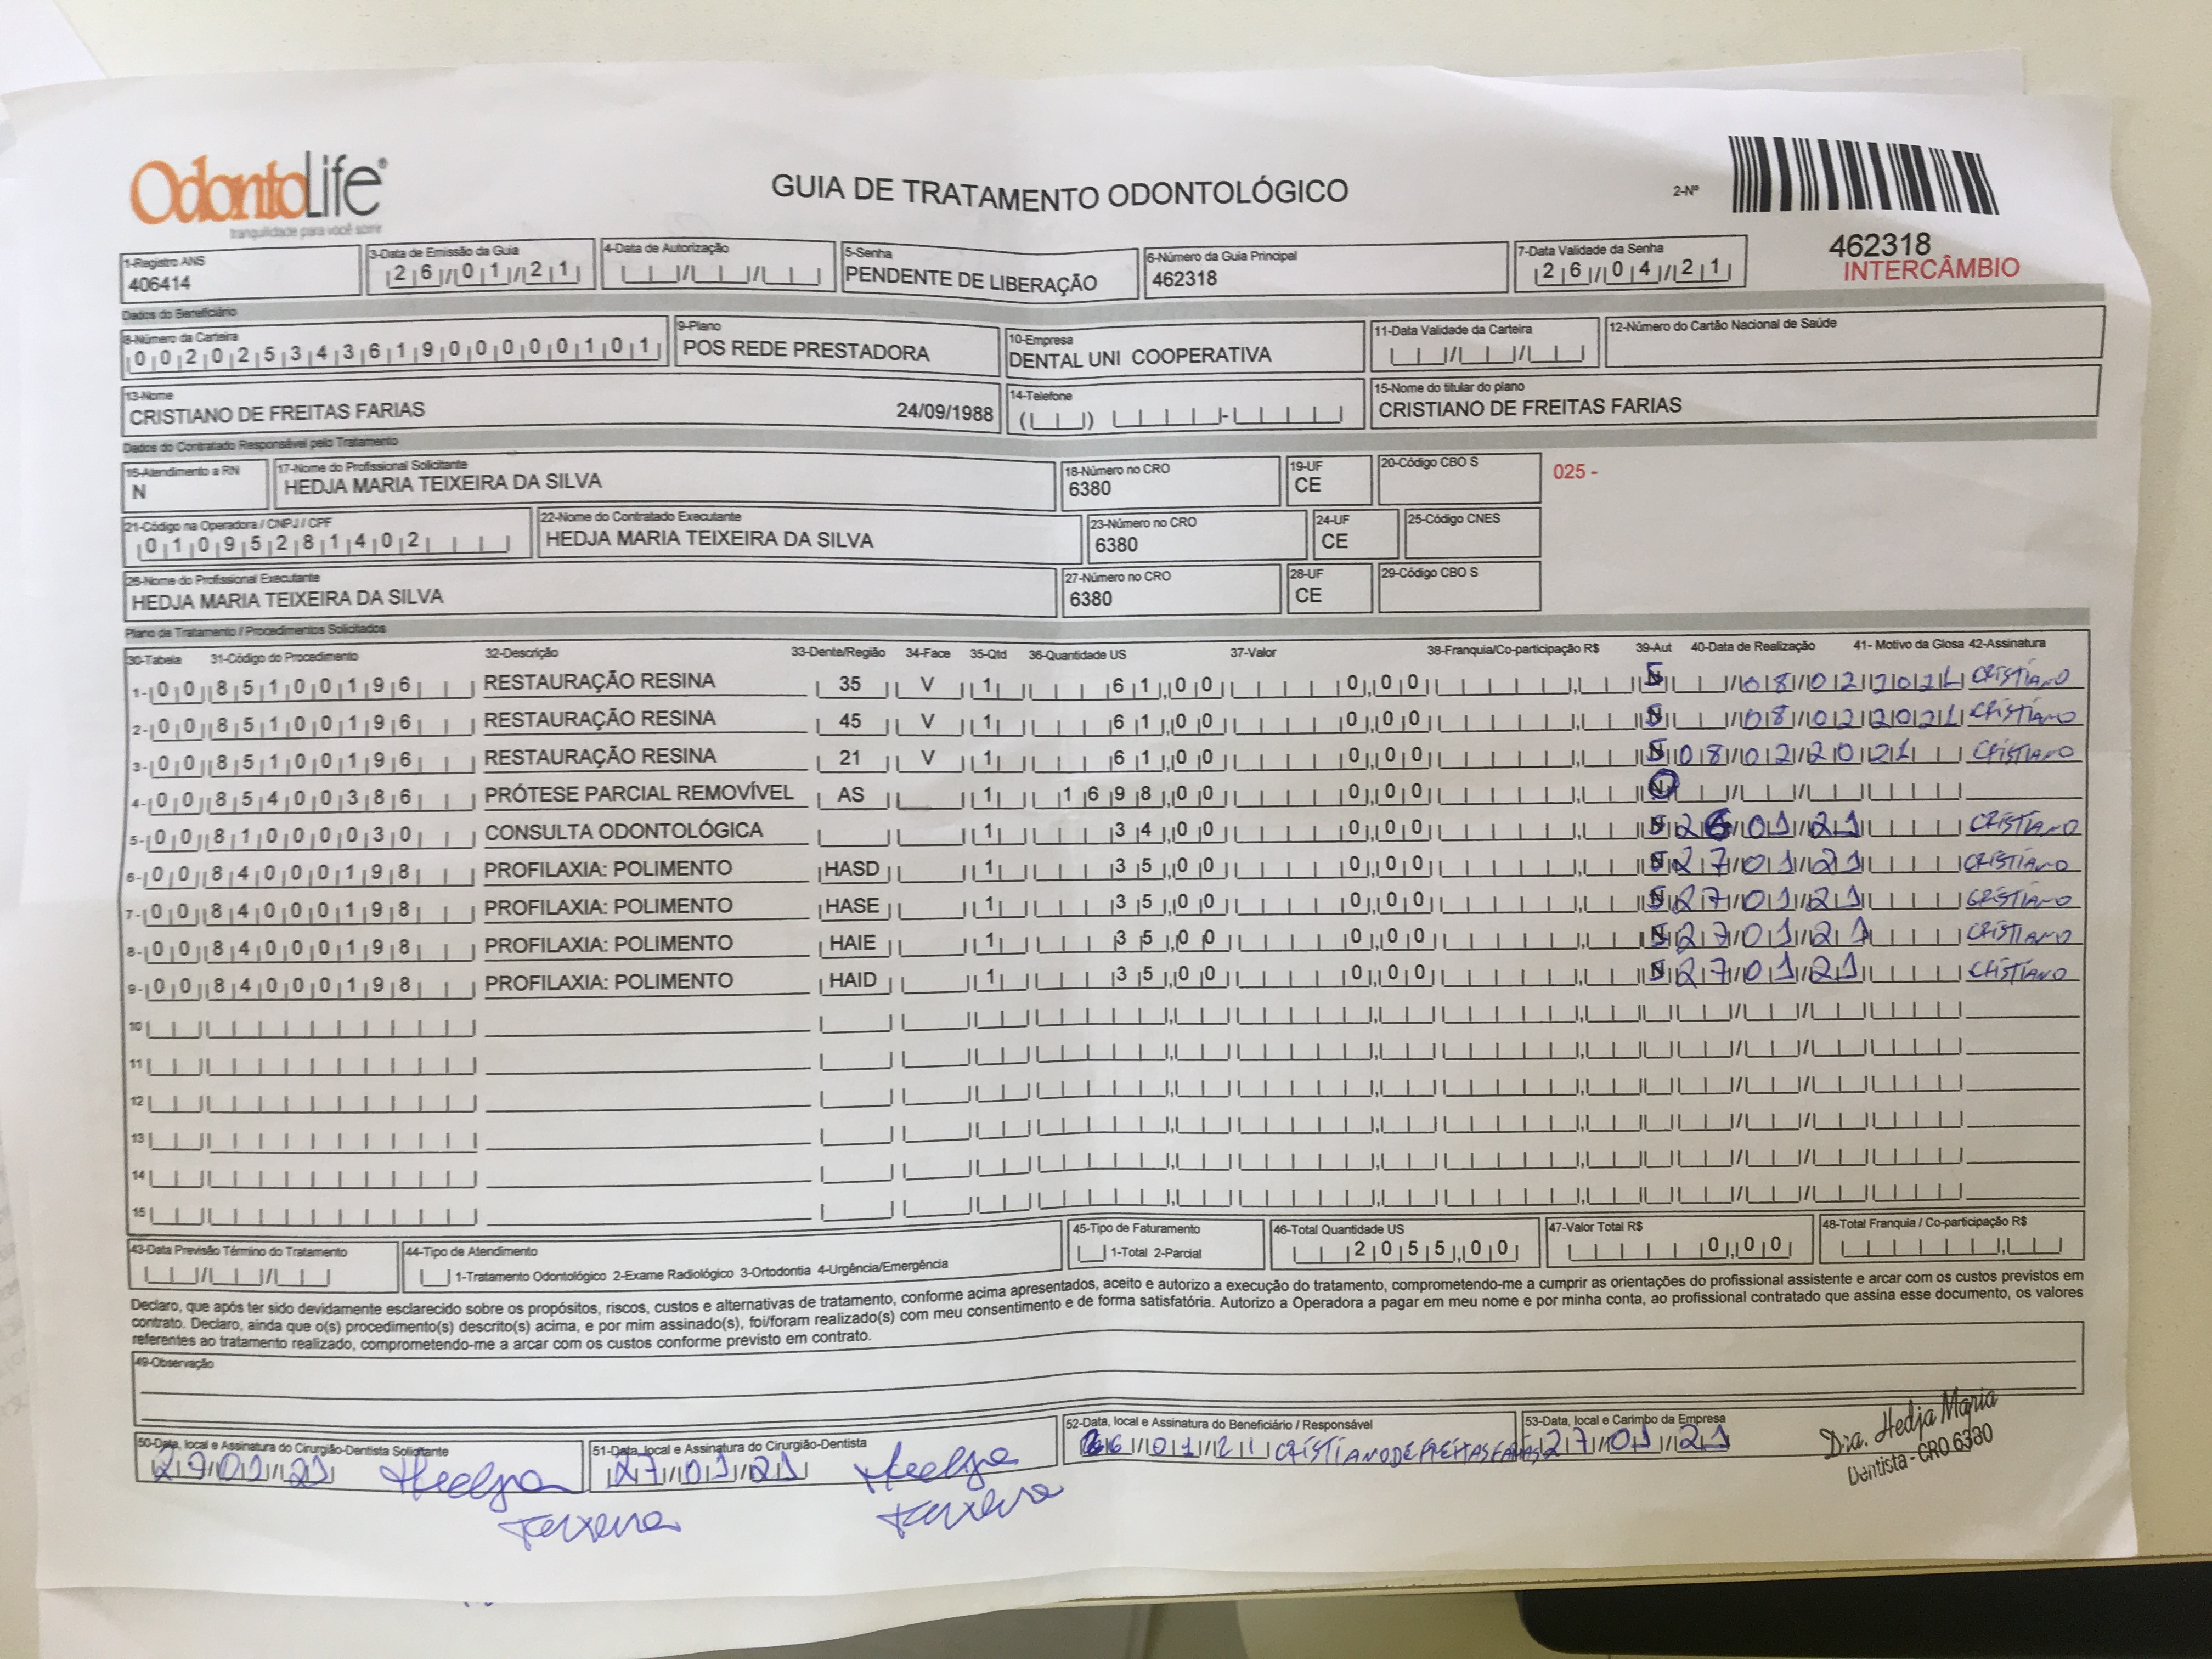 OdontoLife®
tranquilidade para você sorrir
GUIA DE TRATAMENTO ODONTOLÓGICO
2-Nº
462318
INTERCÂMBIO
1-Registro ANS
406414
3-Data de Emissão da Guia
26/01/21
4-Data de Autorização
5-Senha
PENDENTE DE LIBERAÇÃO
6-Número da Guia Principal
462318
7-Data Validade da Senha
26/04/21
Dados do Beneficiário
8-Número da Carteira
00202534361900000101
9-Plano
POS REDE PRESTADORA
10-Empresa
DENTAL UNI COOPERATIVA
11-Data Validade da Carteira
12-Número do Cartão Nacional de Saúde
13-Nome
CRISTIANO DE FREITAS FARIAS 24/09/1988
14-Telefone
15-Nome do titular do plano
CRISTIANO DE FREITAS FARIAS
Dados do Contratado Responsável pelo Tratamento
16-Atendimento a RN
N
17-Nome do Profissional Solicitante
HEDJA MARIA TEIXEIRA DA SILVA
18-Número no CRO
6380
19-UF
CE
20-Código CBO S
025 -
21-Código na Operadora / CNPJ / CPF
01095281402
22-Nome do Contratado Executante
HEDJA MARIA TEIXEIRA DA SILVA
23-Número no CRO
6380
24-UF
CE
25-Código CNES
26-Nome do Profissional Executante
HEDJA MARIA TEIXEIRA DA SILVA
27-Número no CRO
6380
28-UF
CE
29-Código CBO S
Plano de Tratamento / Procedimentos Solicitados
30-Tabela 31-Código do Procedimento 32-Descrição 33-Dente/Região 34-Face 35-Qtd 36-Quantidade US 37-Valor 38-Franquia/Co-participação R$ 39-Aut 40-Data de Realização 41- Motivo da Glosa 42-Assinatura
1- 00 85100196 RESTAURAÇÃO RESINA 35 V 1 61,00 0,00 S 08/02/2021 CRISTIANO
2- 00 85100196 RESTAURAÇÃO RESINA 45 V 1 61,00 0,00 S 08/02/2021 CRISTIANO
3- 00 85100196 RESTAURAÇÃO RESINA 21 V 1 61,00 0,00 S 08/02/2021 CRISTIANO
4- 00 85400386 PRÓTESE PARCIAL REMOVÍVEL AS 1 1698,00 0,00 N
5- 00 81000030 CONSULTA ODONTOLÓGICA 1 34,00 0,00 S 26/01/21 CRISTIANO
6- 00 84000198 PROFILAXIA: POLIMENTO HASD 1 35,00 0,00 S 27/01/21 CRISTIANO
7- 00 84000198 PROFILAXIA: POLIMENTO HASE 1 35,00 0,00 S 27/01/21 CRISTIANO
8- 00 84000198 PROFILAXIA: POLIMENTO HAIE 1 35,00 0,00 S 27/01/21 CRISTIANO
9- 00 84000198 PROFILAXIA: POLIMENTO HAID 1 35,00 0,00 S 27/01/21 CRISTIANO
10
11
12
13
14
15
43-Data Previsão Término do Tratamento
44-Tipo de Atendimento
1-Tratamento Odontológico 2-Exame Radiológico 3-Ortodontia 4-Urgência/Emergência
45-Tipo de Faturamento
1-Total 2-Parcial
46-Total Quantidade US
2055,00
47-Valor Total R$
0,00
48-Total Franquia / Co-participação R$
Declaro, que após ter sido devidamente esclarecido sobre os propósitos, riscos, custos e alternativas de tratamento, conforme acima apresentados, aceito e autorizo a execução do tratamento, comprometendo-me a cumprir as orientações do profissional assistente e arcar com os custos previstos em
contrato. Declaro, ainda que o(s) procedimento(s) descrito(s) acima, e por mim assinado(s), foi/foram realizado(s) com meu consentimento e de forma satisfatória. Autorizo a Operadora a pagar em meu nome e por minha conta, ao profissional contratado que assina esse documento, os valores
referentes ao tratamento realizado, comprometendo-me a arcar com os custos conforme previsto em contrato.
49-Observação
50-Data, local e Assinatura do Cirurgião-Dentista Solicitante
51-Data, local e Assinatura do Cirurgião-Dentista
27/01/21
52-Data, local e Assinatura do Beneficiário / Responsável
26/01/21 CRISTIANO DE FREITAS FARIAS
53-Data, local e Carimbo da Empresa
27/01/21
Dra. Hedja Maria
Dentista - CRO 6380